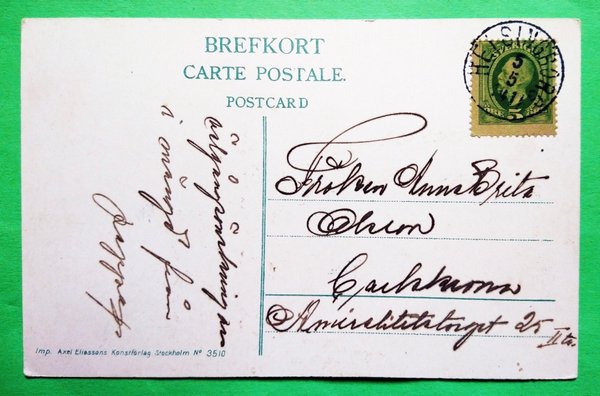 BREFKORT
CARTE POSTALE.
POSTCARD
HELSINGBORG
5
5
Välgångsönskningar
i mängd från
Fröken Anna Brita
Olsson
Carlskrona
Amiralitetstorget 25
II tr.
Imp. Axel Eliassons Konstförlag Stockholm No 3510